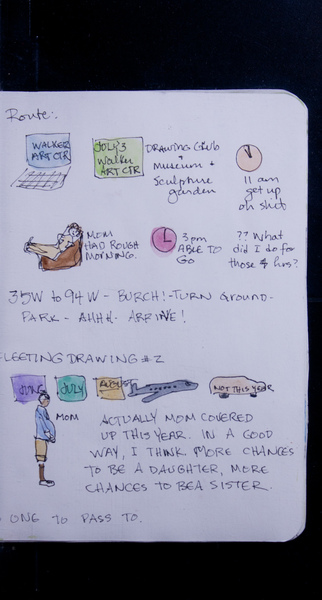 Route:
WALKER
ART CTR
JULY 3
Walker
ART CTR
DRAWING CLUB
+
Museum +
Sculpture
garden
11 am
get up
oh shit
MOM
HAD ROUGH
MORNING.
3pm
ABLE TO
GO
?? What
did I do for
those 4 hrs?
35W to 94 W - BURCH! - TURN GROUND -
PARK - AHHH - ARRIVE!
FLEETING DRAWING #2
JUNE
JULY
AUGUST
NOT THIS YEAR
MOM
ACTUALLY MOM COVERED
UP THIS YEAR. IN A GOOD
WAY, I THINK. MORE CHANCES
TO BE A DAUGHTER, MORE
CHANCES TO BE A SISTER.
ONE TO PASS TO.